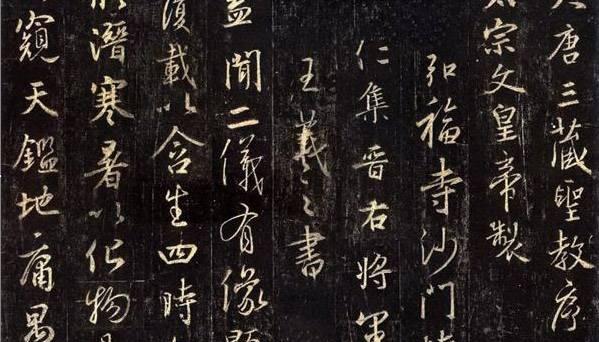 大唐三藏聖教序
太宗文皇帝製
弘福寺沙門懷
仁集晉右將軍
王羲之書
蓋聞二儀有像顯
覆載以含生四時
潛寒暑以化物
窺天鑑地庸愚